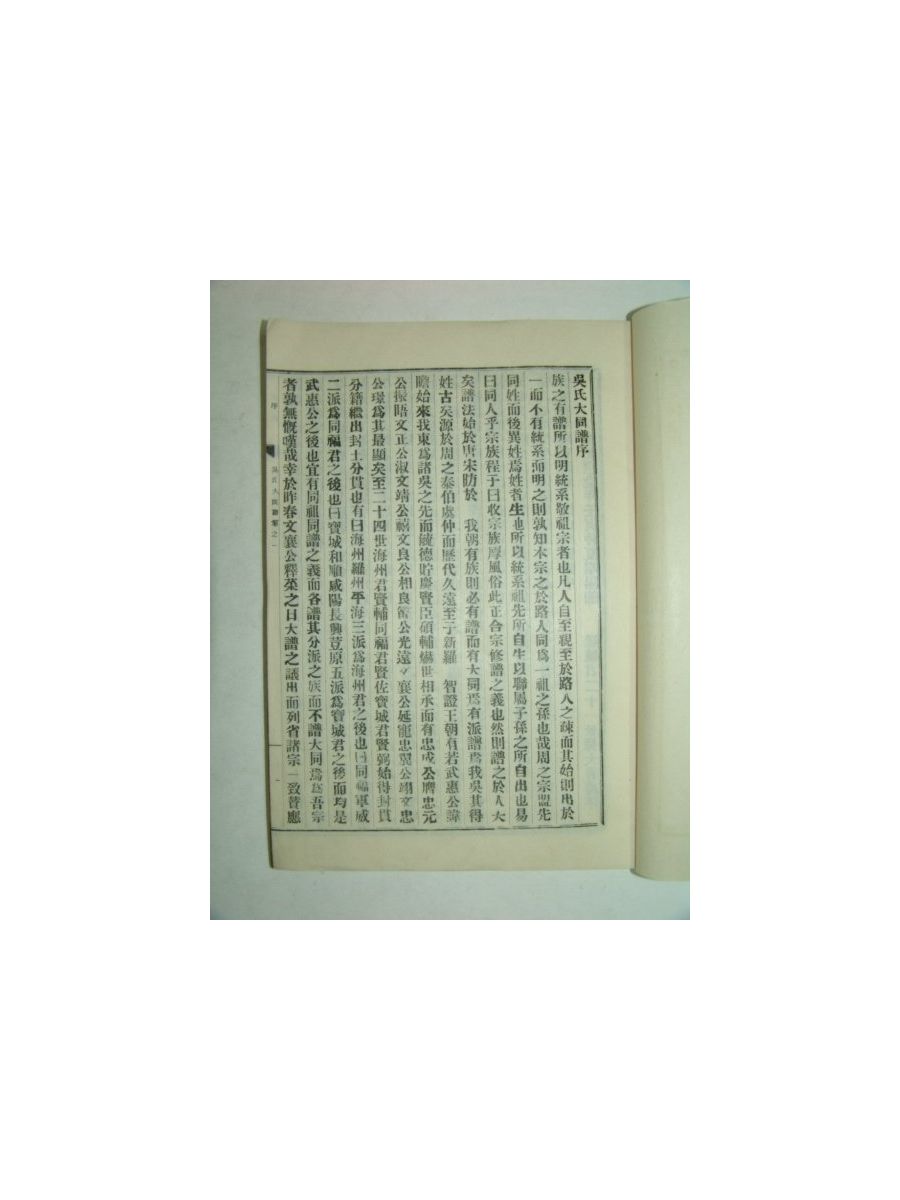 吳氏大同譜序
族之有譜所以明統系敬祖宗者也凡人自至親至於路人之疎而其始則出於
一而不有統系而明之則孰知本宗之於路人同爲一祖之孫也哉周之宗盟先
同姓而後異姓爲姓者生也所以統系祖先所自生以聯屬子孫之所自出也易
曰同人乎宗族程子曰收宗族厚風俗此正合宗修譜之義也然則譜之於人大
矣譜法始於唐宋昉於 我朝有族則必有譜而有大同焉有派譜焉我吳其得
姓古矣源於周之泰伯虞仲而歷代久遠至于新羅 智證王朝有若武惠公諱
瞻始來我東爲諸吳之先而毓德貯慶賢臣碩輔赫世相承而有忠成公膺忠元
公振晤文正公淑文靖公禧文良公相良密公光遠文襄公延寵忠翼公翊文忠
公璟爲其最顯矣至二十四世海州君賢輔同福君賢佐寶城君賢弼始得封貫
分籍繼出封土分貫也有曰海州羅州平海三派爲海州君之後也曰同福軍威
二派爲同福君之後也曰寶城和順咸陽長興荳原五派爲寶城君之後而均是
武惠公之後也宜有同祖同譜之義而各譜其分派之族而不譜大同焉爲吾宗
者孰無慨嘆哉幸於昨春文襄公釋菜之日大譜之議出而列省諸宗一致贊應
序
吳氏大同譜卷之一
一